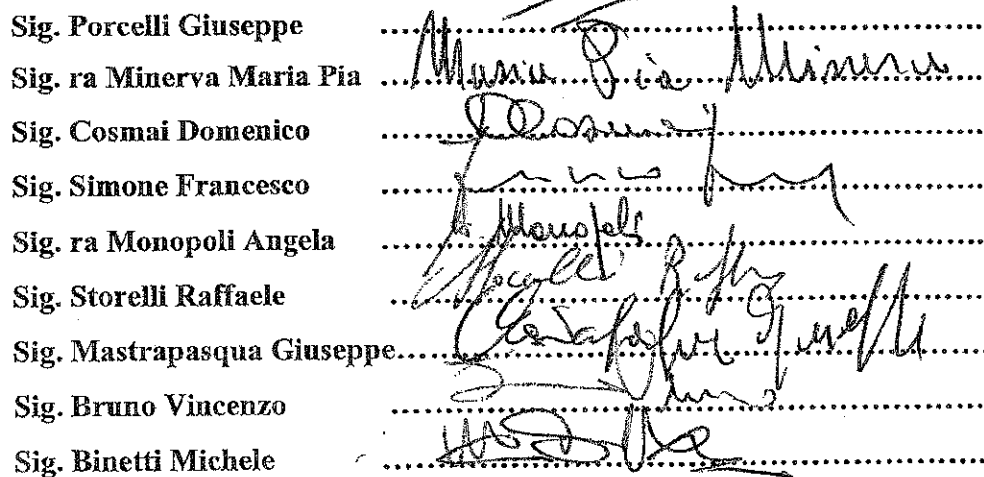 Sig. Porcelli Giuseppe ..........
Sig. ra Minerva Maria Pia .......... Maria Pia Minerva
Sig. Cosmai Domenico ..........
Sig. Simone Francesco ..........
Sig. ra Monopoli Angela .......... A. Monopoli
Sig. Storelli Raffaele ..........
Sig. Mastrapasqua Giuseppe ..........
Sig. Bruno Vincenzo ..........
Sig. Binetti Michele ..........